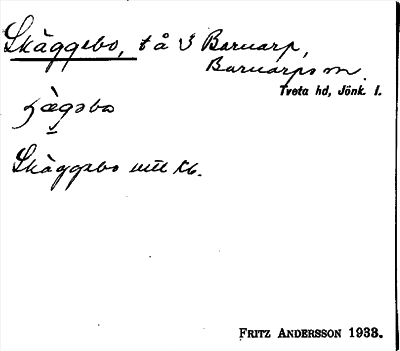 Skäggebo, t å 3 Barnarp,
Barnarps m.
Tveta hd, Jönk. l.
Skäggebo enl kb.
FRITZ ANDERSSON 1933.